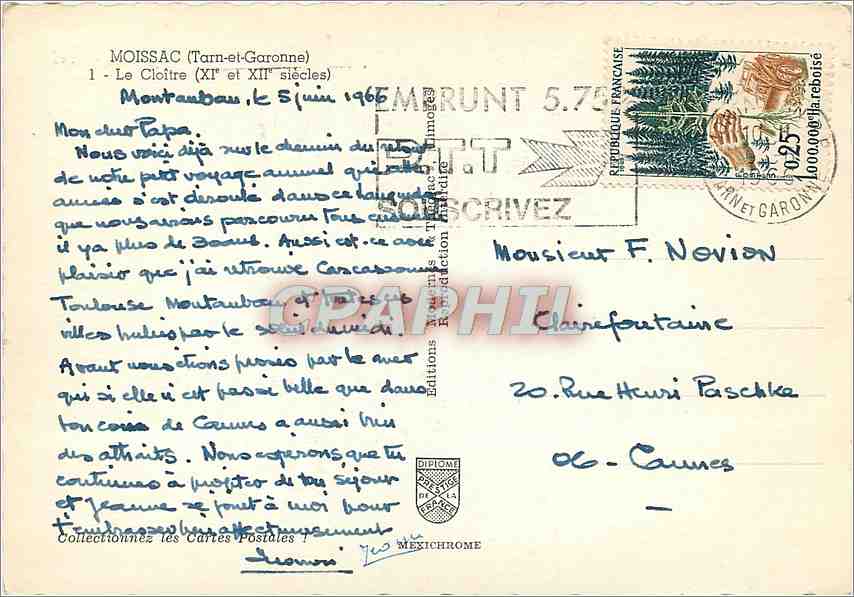 MOISSAC (Tarn-et-Garonne)
1 - Le Cloître (XIe et XIIe siècles)
Montauban, le 5 juin 1966
Mon cher Papa.
Nous voici déjà sur le chemin du retour
de notre petit voyage annuel qui cette
année s'est déroulé dans ce Languedoc
que nous avions parcouru tous ensemble
il y a plus de 30 ans. Aussi est-ce avec
plaisir que j'ai retrouvé Carcassonne
Toulouse Montauban et toutes ces
villes
par le soleil du midi.
Avant nous étions passés par la mer
qui si elle n'est pas si belle que dans
ton coin de Cannes a aussi bien
des attraits. Nous espérons que tu
continues à profiter de ton séjour
et Jeanne se joint à moi pour
t'embrasser bien affectueusement
Collectionnez les Cartes Postales !
Editions Modernes "Théojac" Limoges
Reproduction Interdite
DIPLOME
PRESTIGE
DE LA
FRANCE
MEXICHROME
EMPRUNT 5.75
P.T.T
SOUSCRIVEZ
REPUBLIQUE FRANCAISE
1965
POSTES
0,25
1.000.000e Ha. reboisé
TARN ET GARONNE
Monsieur F. Novion
Clairefontaine
20. Rue Henri Paschke
06 - Cannes
CPAPHIL